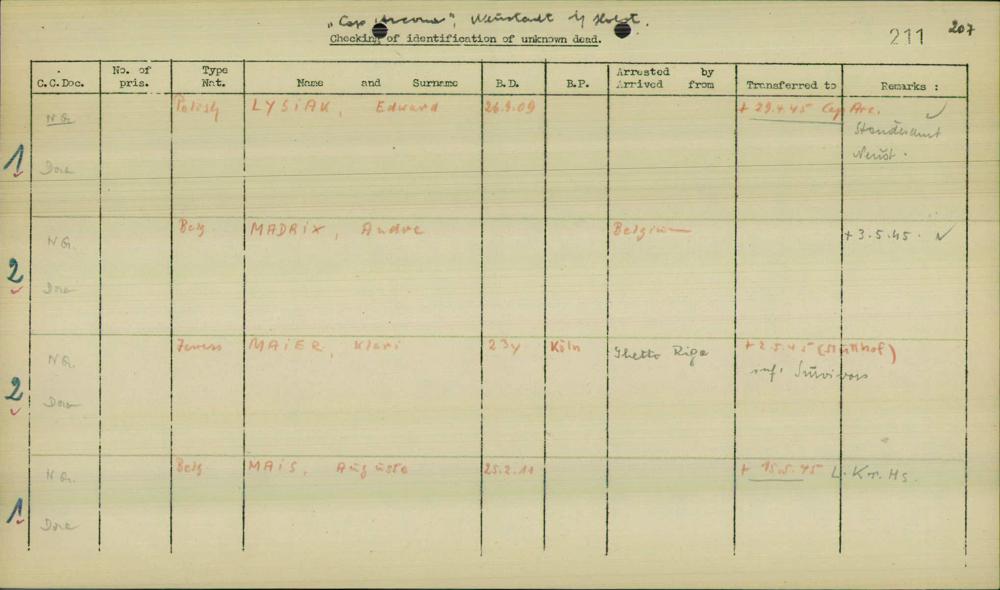 "Cap Arcona", Neustadt i/ Holst.
Checking of identification of unknown dead.
211 207
C.C.Doc. No. of pris. Type Nat. Name and Surname B.D. B.P. Arrested by Arrived from Transferred to Remarks :
1 N.G. Polish LYSIAK, Edward 26.9.09 + 29.4.45 Cap Arc. ✓
Dora Standesamt
Neust.
2 N.G. Belg. MADRIX, Andre Belgium + 3.5.45. ✓
Dora
2 N.G. Jewess MAIER, Klari 23y Köln Ghetto Riga + 2.5.45 (Stutthof)
Dora inf. Survivors
1 N.G. Belg MAIS, Auguste 25.2.11 + 15.5.45 L. Kr. Hs.
Dora